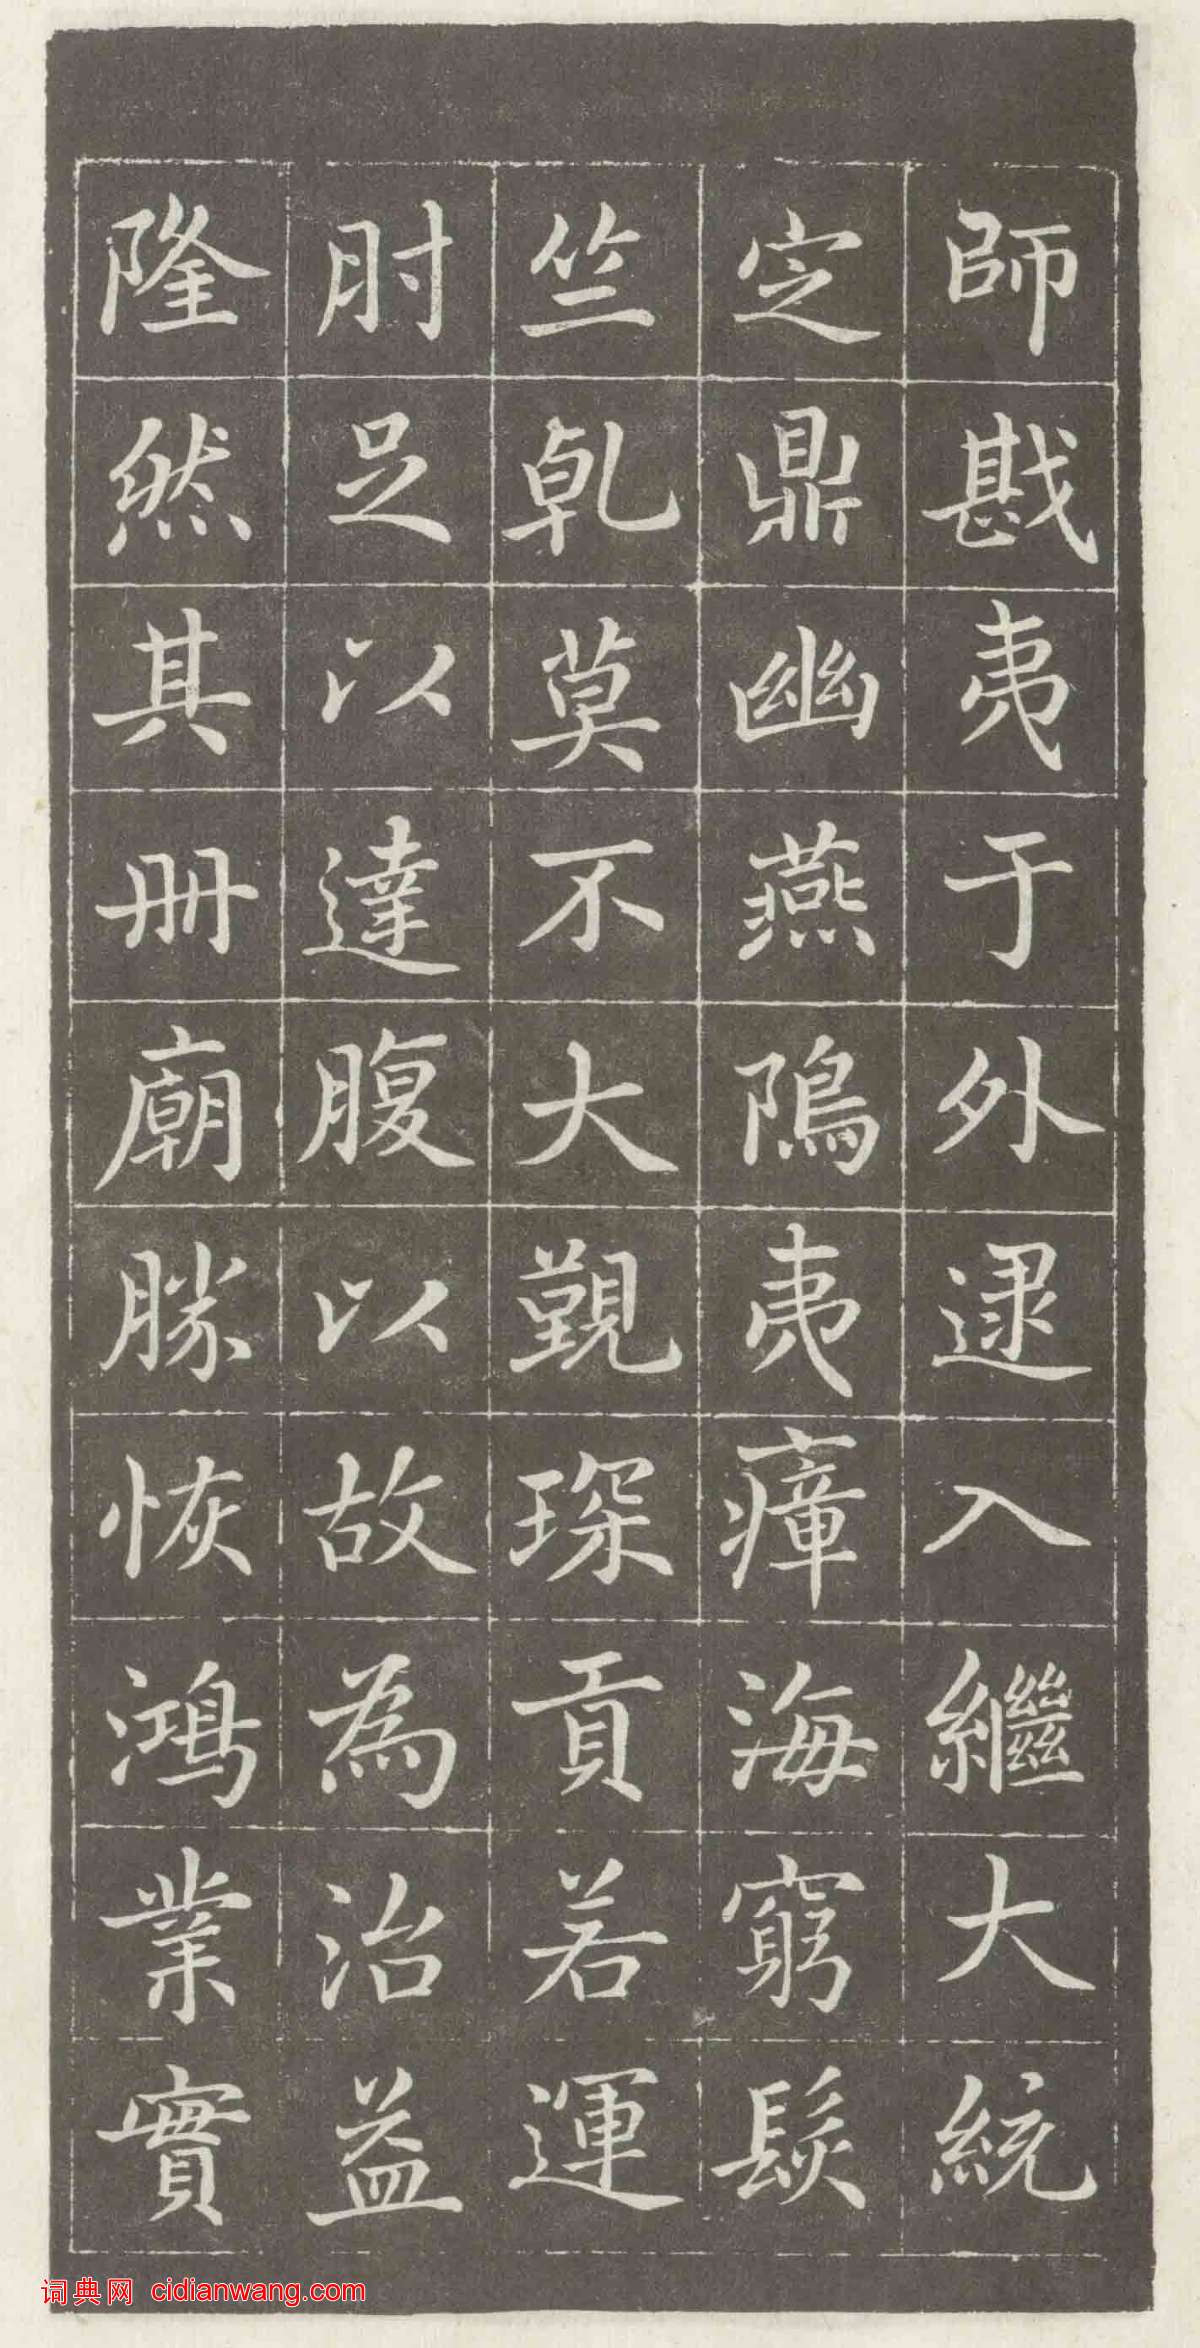 師戡夷于外逮入繼大統
定鼎幽燕隝夷瘴海窮髮
竺乹莫不大覲琛貢若運
肘足以達腹以故為治益
隆然其册廟勝恢鴻業實
词典网 cidianwang.com